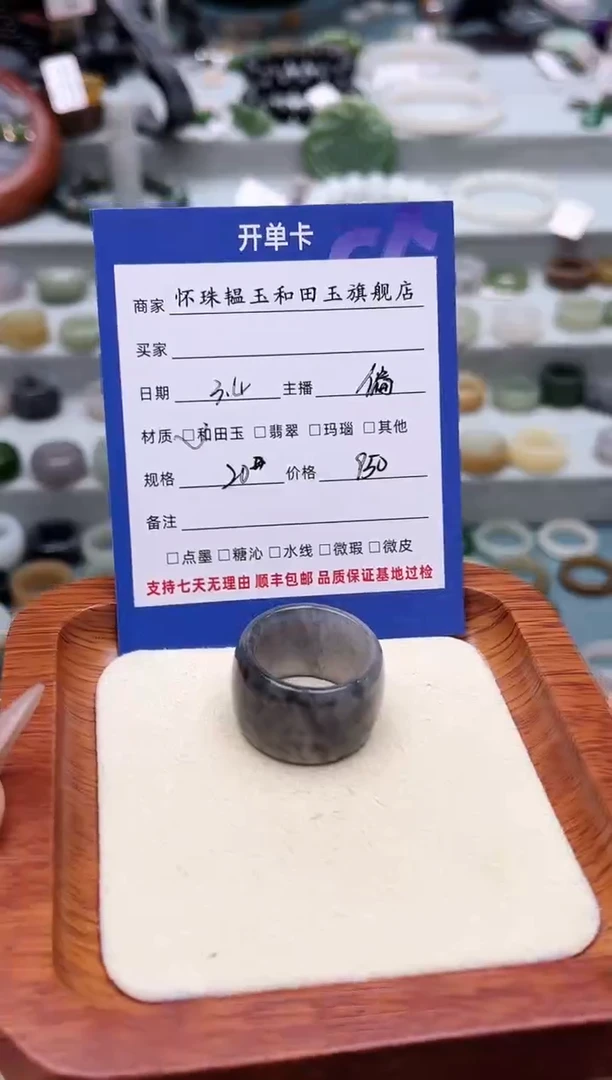 开单卡
商家 怀珠韫玉和田玉旗舰店
买家
日期 3.4 主播 偏
材质 □和田玉 □翡翠 □玛瑙 □其他
规格 20# 价格 950
备注
□点墨 □糖沁 □水线 □微瑕 □微皮
支持七天无理由 顺丰包邮 品质保证基地过检